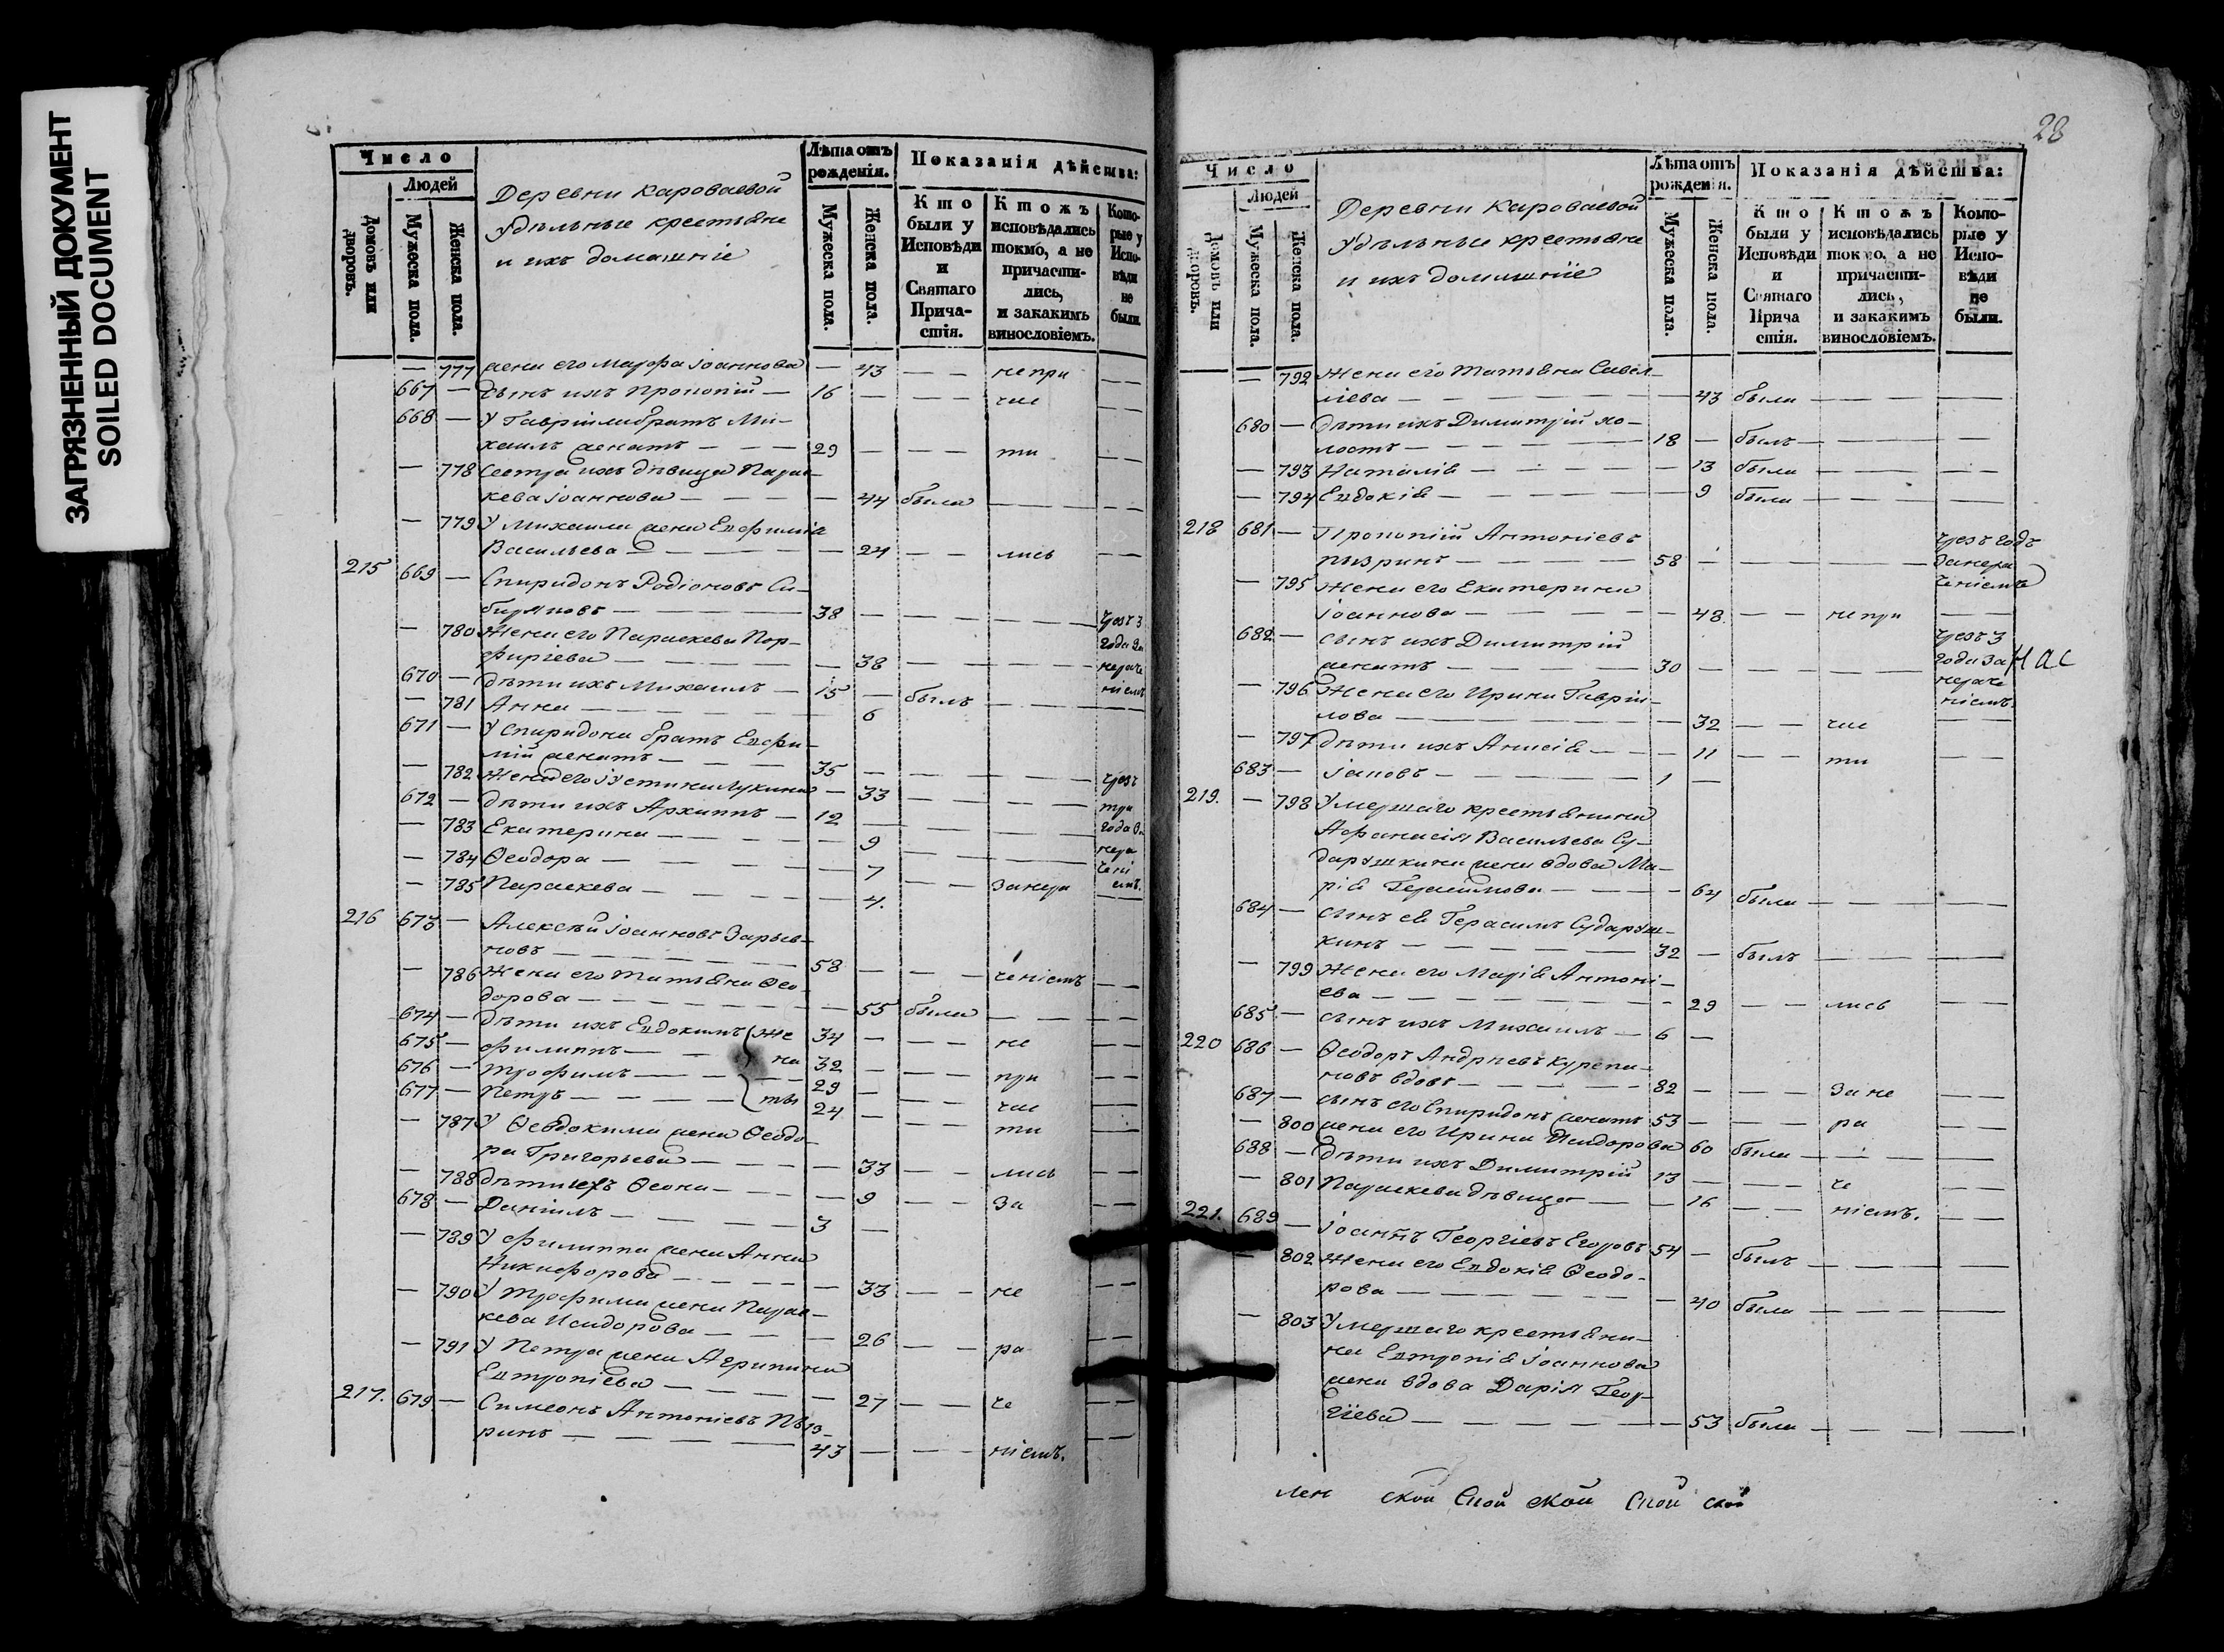 ЗАГРЯЗНЕННЫЙ ДОКУМЕНТ
SOILED DOCUMENT
Число
Людей
Домовъ или дворовъ.
Мужеска пола.
Женска пола.
Деревни Короваевой
Удѣльные крестьяне
и ихъ домашніе
Лѣта отъ рожденія.
Мужеска пола.
Женска пола.
Показанія дѣйства:
Кто были у Исповѣди и Святаго Прича-стія.
Ктожъ исповѣдались токмо, а не причасти-лись, и закакимъ винословіемъ.
Кото-рые у Испо-вѣди не были.
— 777 жена его Марфа Іоаннова — 43 — — не при — —
667 — Сынъ ихъ Прокопій — 16 — — — час — —
668 — У Гавріила братъ Ми-
хаилъ женатъ — — — 29 — — — ти — —
— 778 Сестра ихъ дѣвица Парас-
кева Іоаннова — — — — 44 была — — — —
— 779 У Михаила жена Евфимія
Васильева — — — — 24 — — лись — —
215 669 — Спиридонъ Родіоновъ Си-
биряковъ — — — 38 — — — — — Чрезъ 3
— 780 Жена его Параскева Пор- года за
фиріева — — — — 38 — — — — нераче
670 — Дѣти ихъ Михаилъ — 15 — былъ — — ніемъ
— 781 Анна — — — — 6
671 — У Спиридона братъ Евфи-
мій женатъ — — — 35 — — — — — Чрезъ
— 782 Жена его Іустина Лукина — 33 — — — — три
672 — Дѣти ихъ Архиппъ — 12 — — — — года за
— 783 Екатерина — — — — 9 — — — — нера
— 784 Ѳеодора — — — — 7 — — — чені
— 785 Параскева — — — — 4. — — за нера емъ.
216 673 — Алексѣй Іоанновъ Зарыв-
новъ — — — — 58 — — — ченіемъ — —
— 786 Жена его Татьяна Ѳео-
дорова — — — — 55 была — — — —
674 — Дѣти ихъ Евдокимъ же 34 — — — не — —
675 — Филиппъ — — на 32 — — — при — —
676 — Трофимъ — — — 29 — — — час — —
677 — Петръ — — — ты 24 — — — ти — —
— 787 У Ѳевдокима жена Ѳеодо-
ра Григорьева — — — — 33 — — лись — —
— 788 Дѣти ихъ Ѳекла — — — 9 — — за — —
678 — Даніилъ — — — — 3 —
— 789 У Филиппа жена Анна
Никифорова — — — — 33 — — не — —
— 790 У Трофима жена Парас-
кева Исидорова — — — 26 — — ра — —
— 791 У Петра жена Агрипина
Евтропіева — — — — 27 — — че — —
217. 679 — Симеонъ Антоніевъ Пыз-
ринъ — — — — 43 — — — ніемъ. — —
28
Число
Людей
Домовъ или дворовъ.
Мужеска пола.
Женска пола.
Деревни Короваевой
Удѣльные крестьяне
и ихъ домашніе
Лѣта отъ рожденія.
Мужеска пола.
Женска пола.
Показанія дѣйства:
Кто были у Исповѣди и Святаго Прича стія.
Ктожъ исповѣдались токмо, а не причасти-лись, и закакимъ винословіемъ.
Кото-рые у Испо-вѣди не были.
— 792 Жена его Татьяна Савел-
ліева — — — — 43 была — — — —
680 — Дѣти ихъ Димитрій хо-
лостъ — — — — 18 — былъ — — — —
— 793 Наталія — — — — 13 была — — — —
— 794 Евдокія — — — — 9 была — — — —
218 681 — Прокопій Антоніевъ Чрезъ годъ
пызринъ — — — — 58 — — — — — за нера
— 795 Жена его Екатерина ченіемъ
Іоаннова — — — — 48. — — не при — —
682 — сынъ ихъ Димитрій Чрезъ 3
женатъ — — — — 30 — — — — — года за НАС
— 796 Жена его Ирина Гаврии- нераче
лова — — — — 32 — — час ніемъ.
— 797 Дѣти ихъ Анисія — — — 11 — — ти — —
683 — Іаковъ — — — — 1 —
219. — 798 Умершаго крестьянина
Афанасія Васильева Су-
дарушкина жена вдова Ма-
рія Герасимова — — — — 64 была — — — —
684 — сынъ ея Герасимъ Сударуш-
кинъ — — — — 32 — былъ — — — —
— 799 Жена его Марія Антоні-
ева — — — — 29 — — лись — —
685 — сынъ ихъ Михаилъ — 6 —
220 686 — Ѳеодоръ Андреевъ Курепи-
новъ вдовъ — — — — 82 — — — за не — —
687 — сынъ его Спиридонъ женатъ 53 — — — ра — —
— 800 жена его Ирина Исидорова 60 была — — — —
688 — Дѣти ихъ Димитрій 13 — — — че — —
— 801 Параскева дѣвица — — 16 — — ніемъ. — —
221. 689 — Іоаннъ Георгіевъ Егоровъ 54 — былъ — — — —
— 802 Жена его Евдокія Ѳеодо-
рова — — — — 40 была — — — —
— 803 Умершаго крестьяни-
на Евтропія Іоаннова
жена вдова Дарія Геор-
гіева — — — — 53 была — — — —
лен ской Спой ской Спой ской